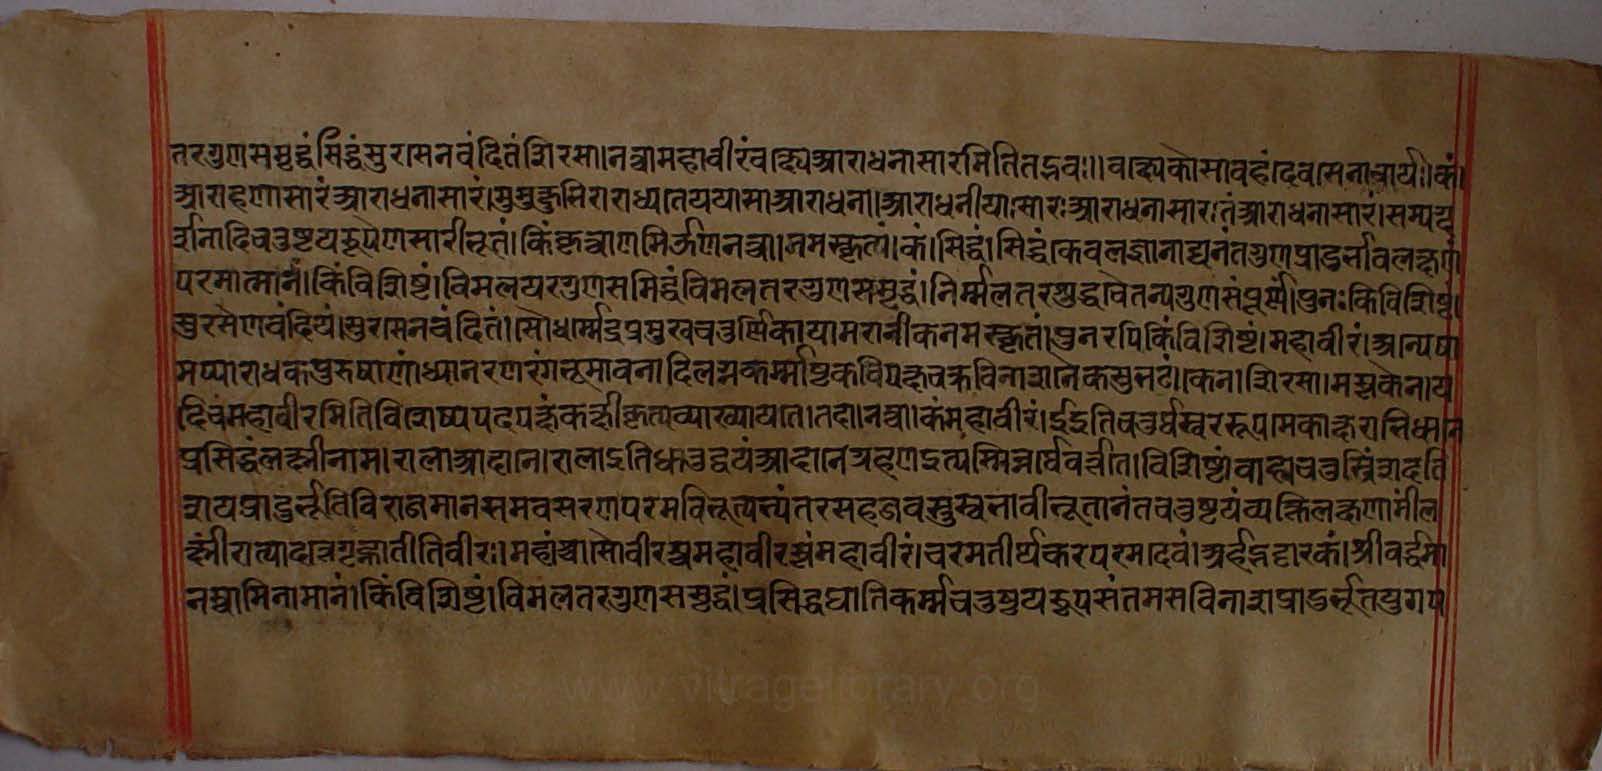 तरगुणसमृद्धंसिद्धंसुरासेनवंदितंशिरसा।नत्वामहावीरंवक्ष्येआराधनासारमितितद्भवः।।वक्ष्येकोसावहंदेवसेनाचार्यः।कं।
आराहणासारंआराधनासारं।मुमुक्षुभिराराध्यतेययासाआराधना।आराधनीयाःसारःआराधनासारःतंआराधनासारं।सम्यग्द
र्शनादिचतुष्टयरूपेणसारीभूतं।किंकृत्वाणमिऊणनत्वा।नमस्कृत्य।कं।सिद्धं।सिद्धं।केवलज्ञानाद्यनंतगुणप्रादुर्भावलक्षणं
परमात्मानं।किंविशिष्टं।विमलयरगुणसमिद्धंविमलतरगुणसमृद्धं।निर्म्मलतरशुद्धचैतन्यगुणसंपूर्णं।पुनःकिंविशिष्टं।
सुरसेणवंदियं।सुरासेनवंदितं।सौधर्म्मेंद्रप्रमुखचतुर्णिकायामरानीकनमस्कृतं।पुनरपिकिंविशिष्टं।महावीरं।अन्येषा
मप्याराधकपुरुषाणां।ध्यानरणरंगभूमावनादिलग्नकर्म्माष्टकविपक्षचक्रविनाशनैकसुभटं।केन।शिरसा।मस्तकेनाय
दिचमहावीरमितिविशेष्यपदपक्षंकक्षीकृत्यव्याख्यायाते।तदा।नत्वा।कंमहावीरं।ईइतिचतुर्थस्वररूपामेकाक्षराभिधाने
प्रसिद्धंलक्ष्मीनाम।रालाआदाने।रालाइतिधातुद्वयंआदानेग्रहणेइत्यस्मिन्नर्थेवर्त्तते।विशिष्टांबाह्यचतुस्त्रिंशदति
शयप्रादुर्भूतिविराजमानसमवसरणपरमविभूत्यभ्यंतरसहजवस्तुस्वभावीभूतानंतचतुष्टयंव्यक्तिलक्षणांमील
क्ष्मीरात्यादात्तेगृह्णातीतिवीरः।महांश्चासौवीरश्चमहावीरस्तंमहावीरं।चरमतीर्थकरपरमदेवं।अर्हद्भट्टारकं।श्रीवर्द्धमा
नस्वामिनामानं।किंविशिष्टं।विमलतरगुणसमृद्धं।प्रसिद्धघातिकर्म्मचतुष्टयरूपसंतमसविनाशप्रादुर्भूतयुगप
www.vitragelibrary.org